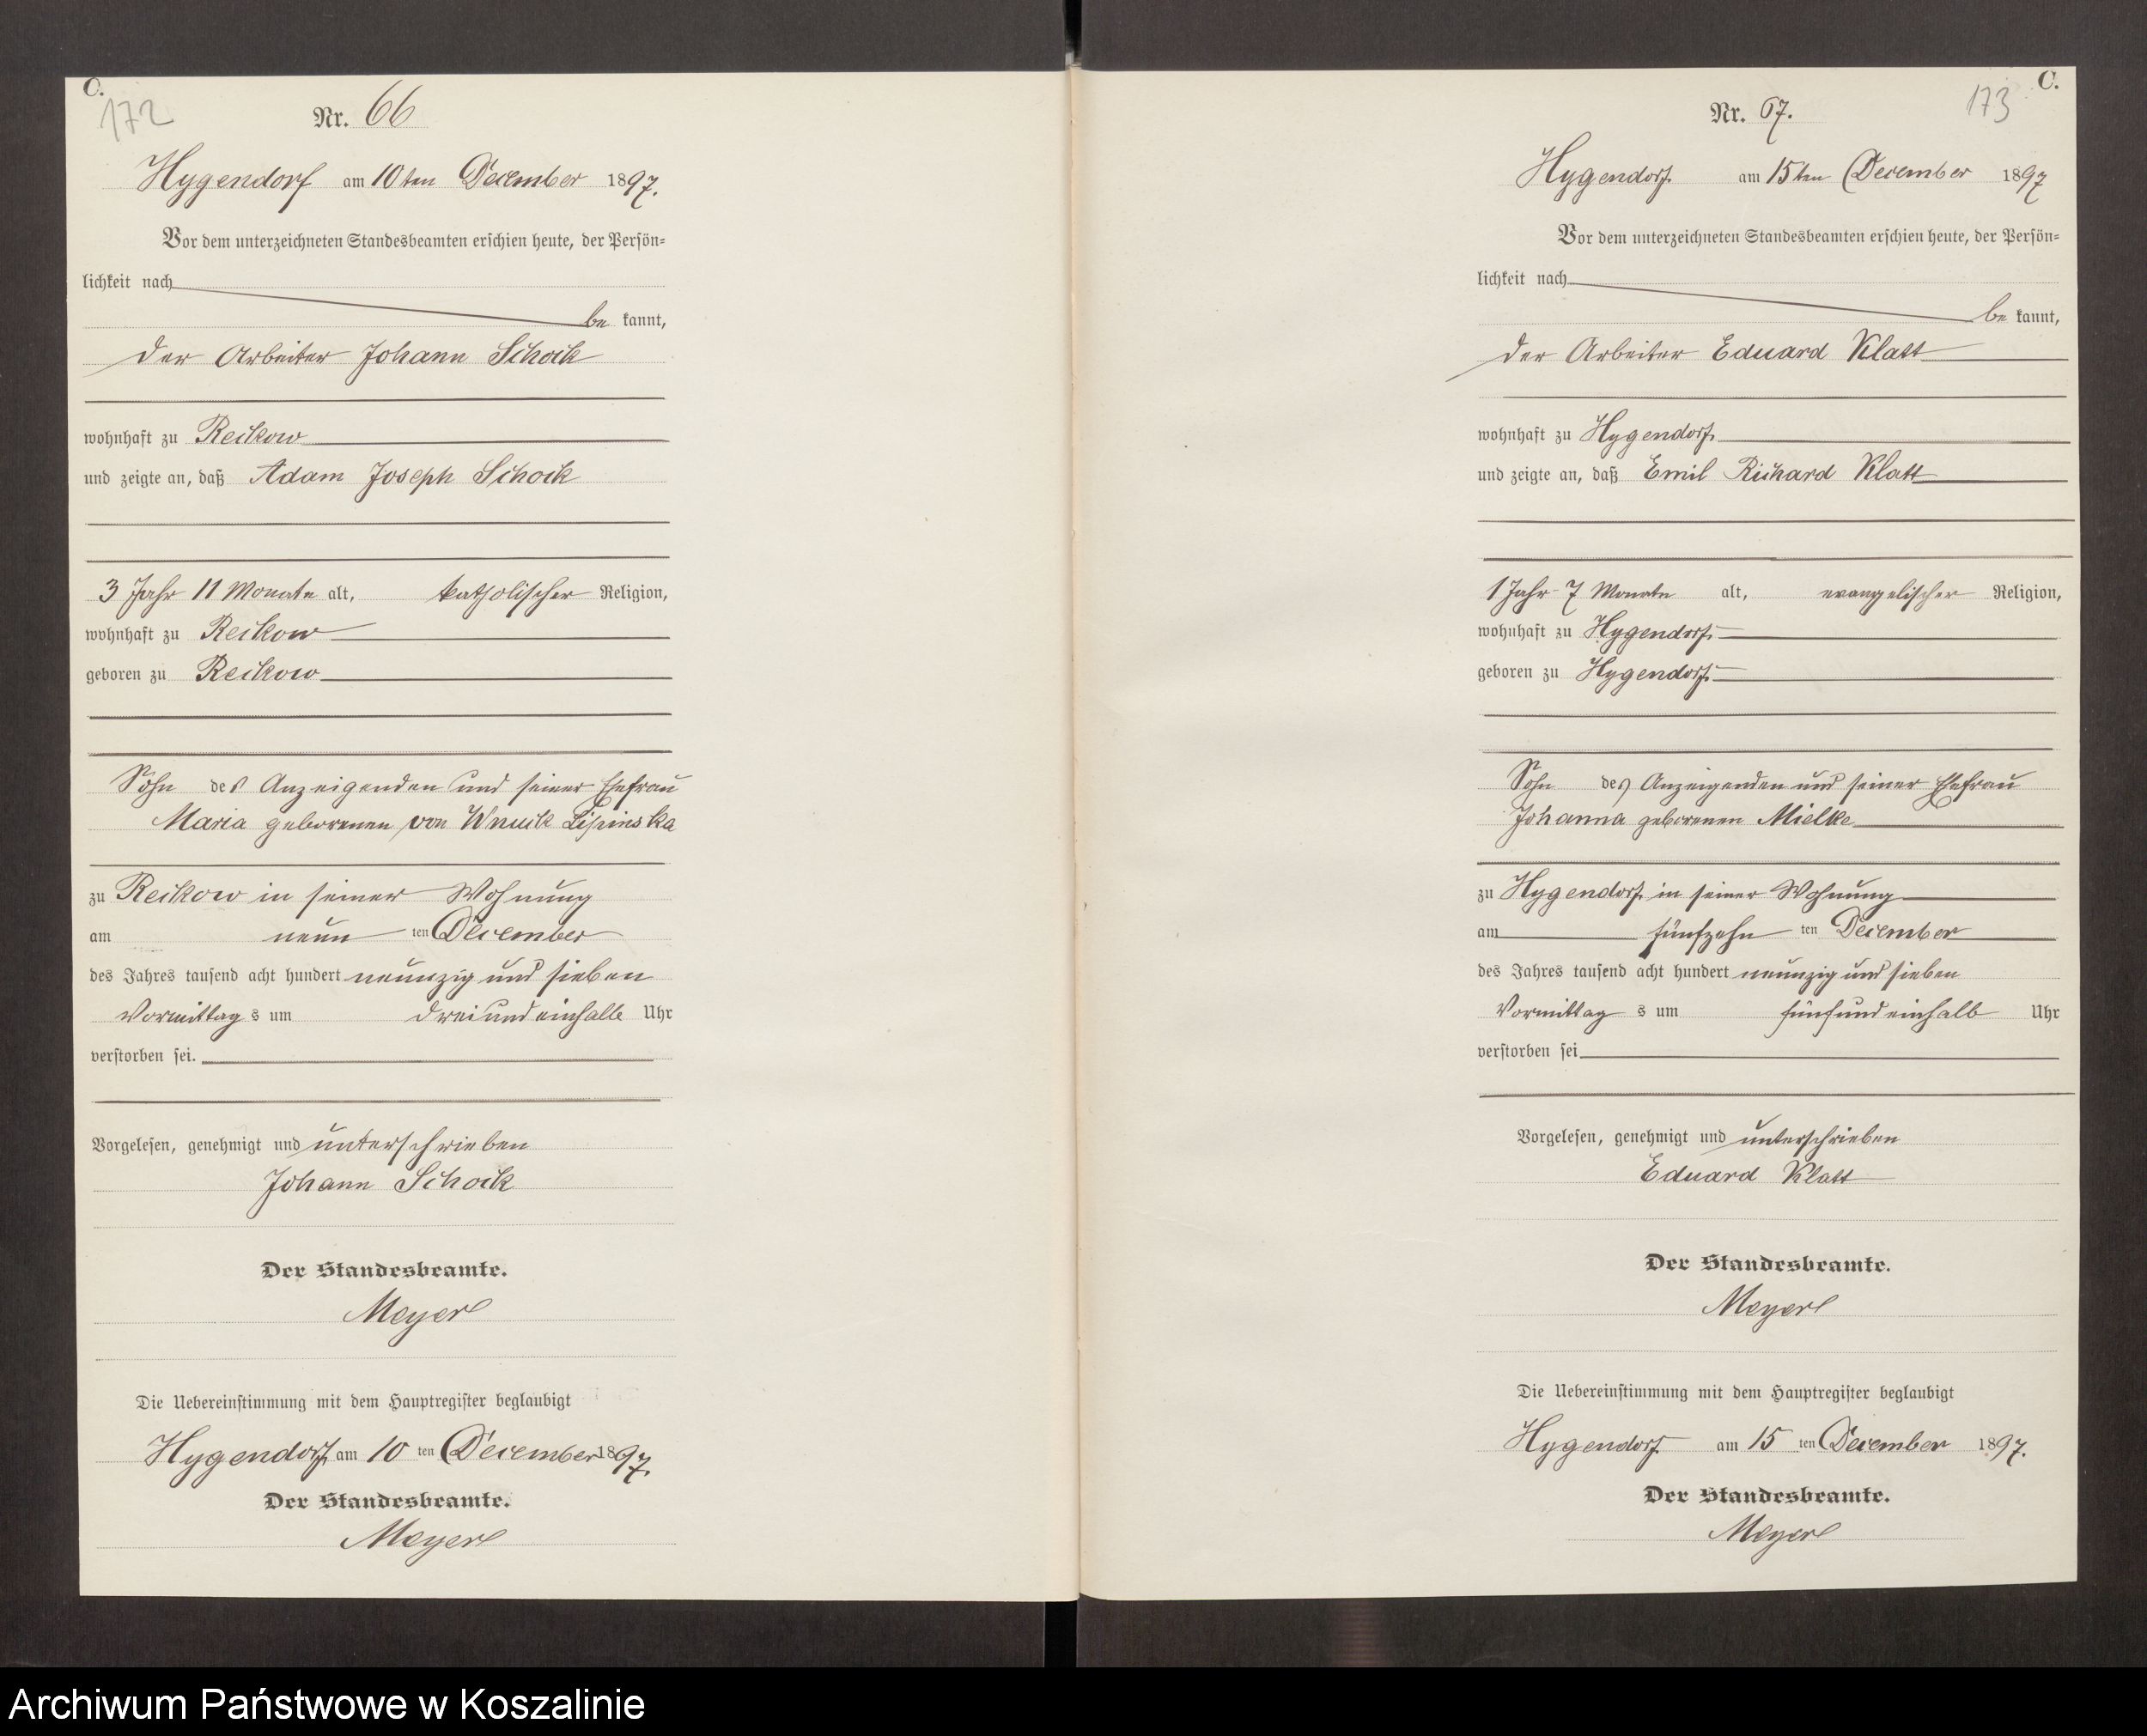 C.
172
Nr. 66
Hygendorf am 10ten December 1897.
Vor dem unterzeichneten Standesbeamten erschien heute, der Persön=
lichkeit nach
be kannt,
der Arbeiter Johann Schock
wohnhaft zu Reckow
und zeigte an, daß Adam Joseph Schock
3 Jahr 11 Monate alt, katholischer Religion,
wohnhaft zu Reckow
geboren zu Reckow
Sohn des Anzeigenden und seiner Ehefrau
Maria geborenen von Wnuck Lipinska
zu Reckow in seiner Wohnung
am neun ten December
des Jahres tausend acht hundert neunzig und sieben
Vormittag s um drei und einhalb Uhr
verstorben sei.
Vorgelesen, genehmigt und unterschrieben
Johann Schock
Der Standesbeamte.
Meyer
Die Uebereinstimmung mit dem Hauptregister beglaubigt
Hygendorf am 10 ten December 1897.
Der Standesbeamte.
Meyer
C.
173
Nr. 67.
Hygendorf am 15ten December 1897
Vor dem unterzeichneten Standesbeamten erschien heute, der Persön=
lichkeit nach
be kannt,
der Arbeiter Eduard Klatt
wohnhaft zu Hygendorf
und zeigte an, daß Emil Richard Klatt
1 Jahr 7 Monate alt, evangelischer Religion,
wohnhaft zu Hygendorf
geboren zu Hygendorf
Sohn des Anzeigenden und seiner Ehefrau
Johanna geborenen Mielke
zu Hygendorf in seiner Wohnung
am fünfzehn ten December
des Jahres tausend acht hundert neunzig und sieben
Vormittag s um fünf und einhalb Uhr
verstorben sei
Vorgelesen, genehmigt und unterschrieben
Eduard Klatt
Der Standesbeamte.
Meyer
Die Uebereinstimmung mit dem Hauptregister beglaubigt
Hygendorf am 15 ten December 1897.
Der Standesbeamte.
Meyer
Archiwum Państwowe w Koszalinie